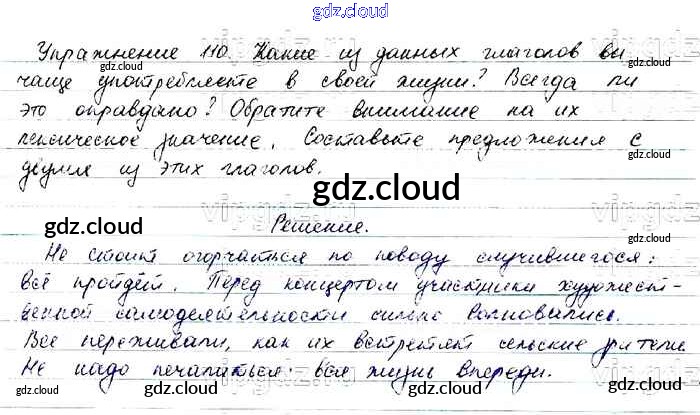 gdz.cloud
Упражнение 110. Какие из данных глаголов вы
чаще употребляете в своей жизни? Всегда ли
это оправдано? Обратите внимание на их
лексическое значение. Составьте предложения с
двумя из этих глаголов.
gdz.cloud
Решение.
Не стоит огорчаться по поводу случившегося:
всё пройдёт. Перед концертом участники художест-
венной самодеятельности сильно волновались.
Все переживали, как их встретят сельские зрители.
Не надо печалиться: вся жизнь впереди.